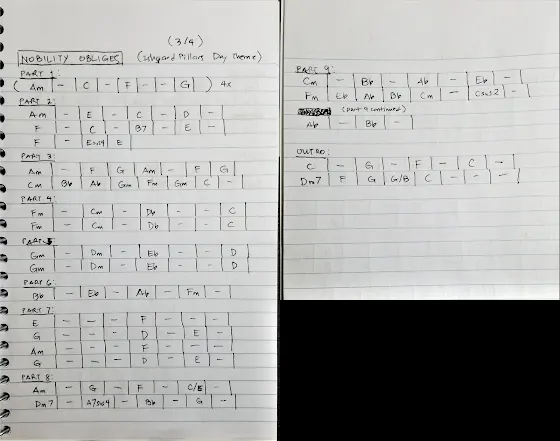 (3/4)
NOBILITY OBLIGES (Sohgard Pillars Day theme)
PART 1:
( Am | - | C | - | F | - | - | G ) 4x
PART 2:
Am | - | E | - | C | - | D | -
F | - | C | - | B7 | - | E | -
F | - | Esus4 | E
PART 3:
Am | - | F | G | Am | - | F | G
Cm | Bb | Ab | Gm | Fm | Gm | C | -
PART 4:
Fm | - | Cm | - | Db | - | - | C
Fm | - | Cm | - | Db | - | - | C
PART 5:
Gm | - | Dm | - | Eb | - | - | D
Gm | - | Dm | - | Eb | - | - | D
PART 6:
Bb | - | Eb | - | Ab | - | Fm | -
PART 7:
E | - | - | - | F | - | - | -
G | - | - | - | D | - | E | -
Am | - | - | - | F | - | - | -
G | - | - | - | D | - | E | -
PART 8:
Am | - | G | - | F | - | C/E | -
Dm7 | - | A7sus4 | - | Bb | - | G | -
PART 9:
Cm | - | Bb | - | Ab | - | Eb | -
Fm | Eb | Ab | Bb | Cm | - | Csus2 | -
(part 9 continued)
Ab | - | Bb | -
OUTRO:
C | - | G | - | F | - | C | -
Dm7 | F | G | G/B | C | - | - | -